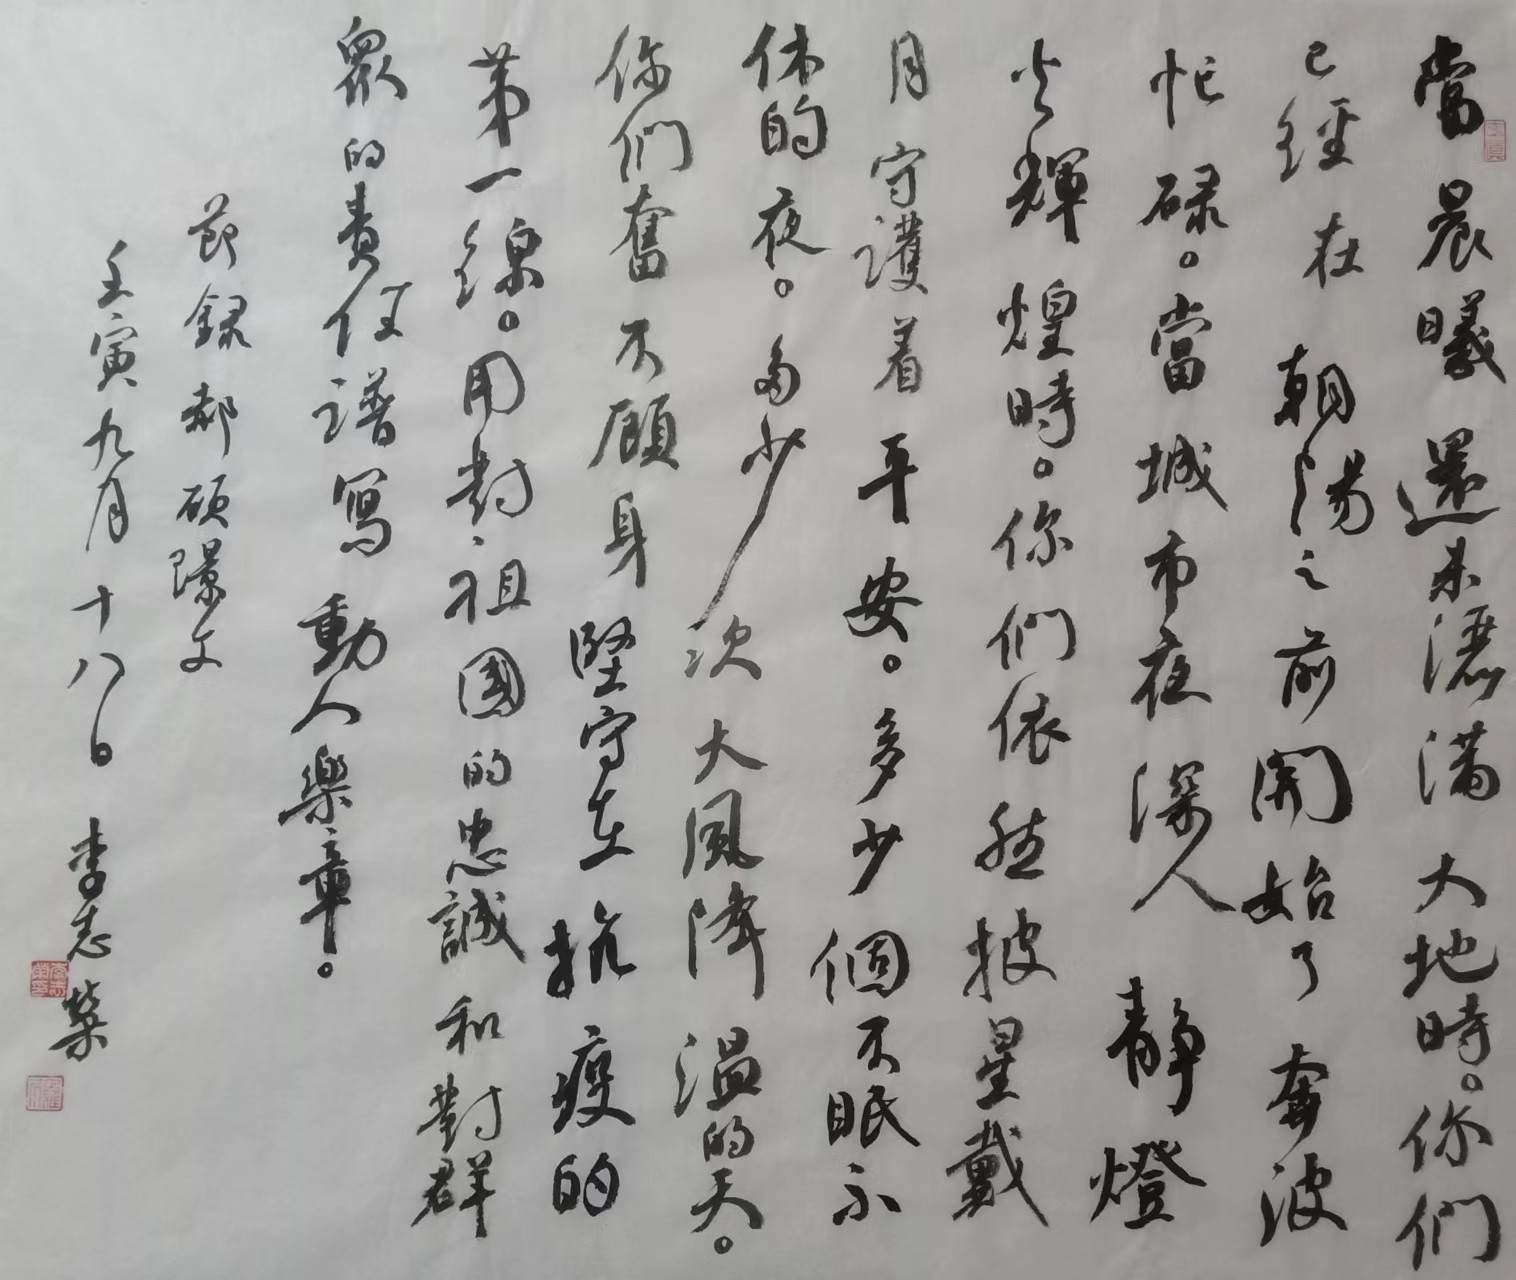 當晨曦還未灑滿大地時。你們
已經在朝陽之前開始了奔波
忙碌。當城市夜深人靜燈
火輝煌時。你們依然披星戴
月守護着平安。多少個不眠不
休的夜。多少次大風降溫的天。
你們奮不顧身堅守在抗疫的
第一線。用對祖國的忠誠和對群
眾的責任譜寫動人樂章。
節錄郝碩璟文
壬寅九月十八日李志榮